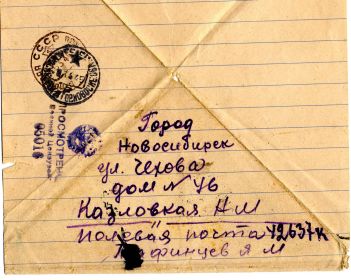 СССР
ПРОСМОТРЕНО
Военной Цензурой
05016
Город
Новосибирск
ул. Чехова
дом № 46
Казловкая Н М
полевая почта 42637 к
Я М